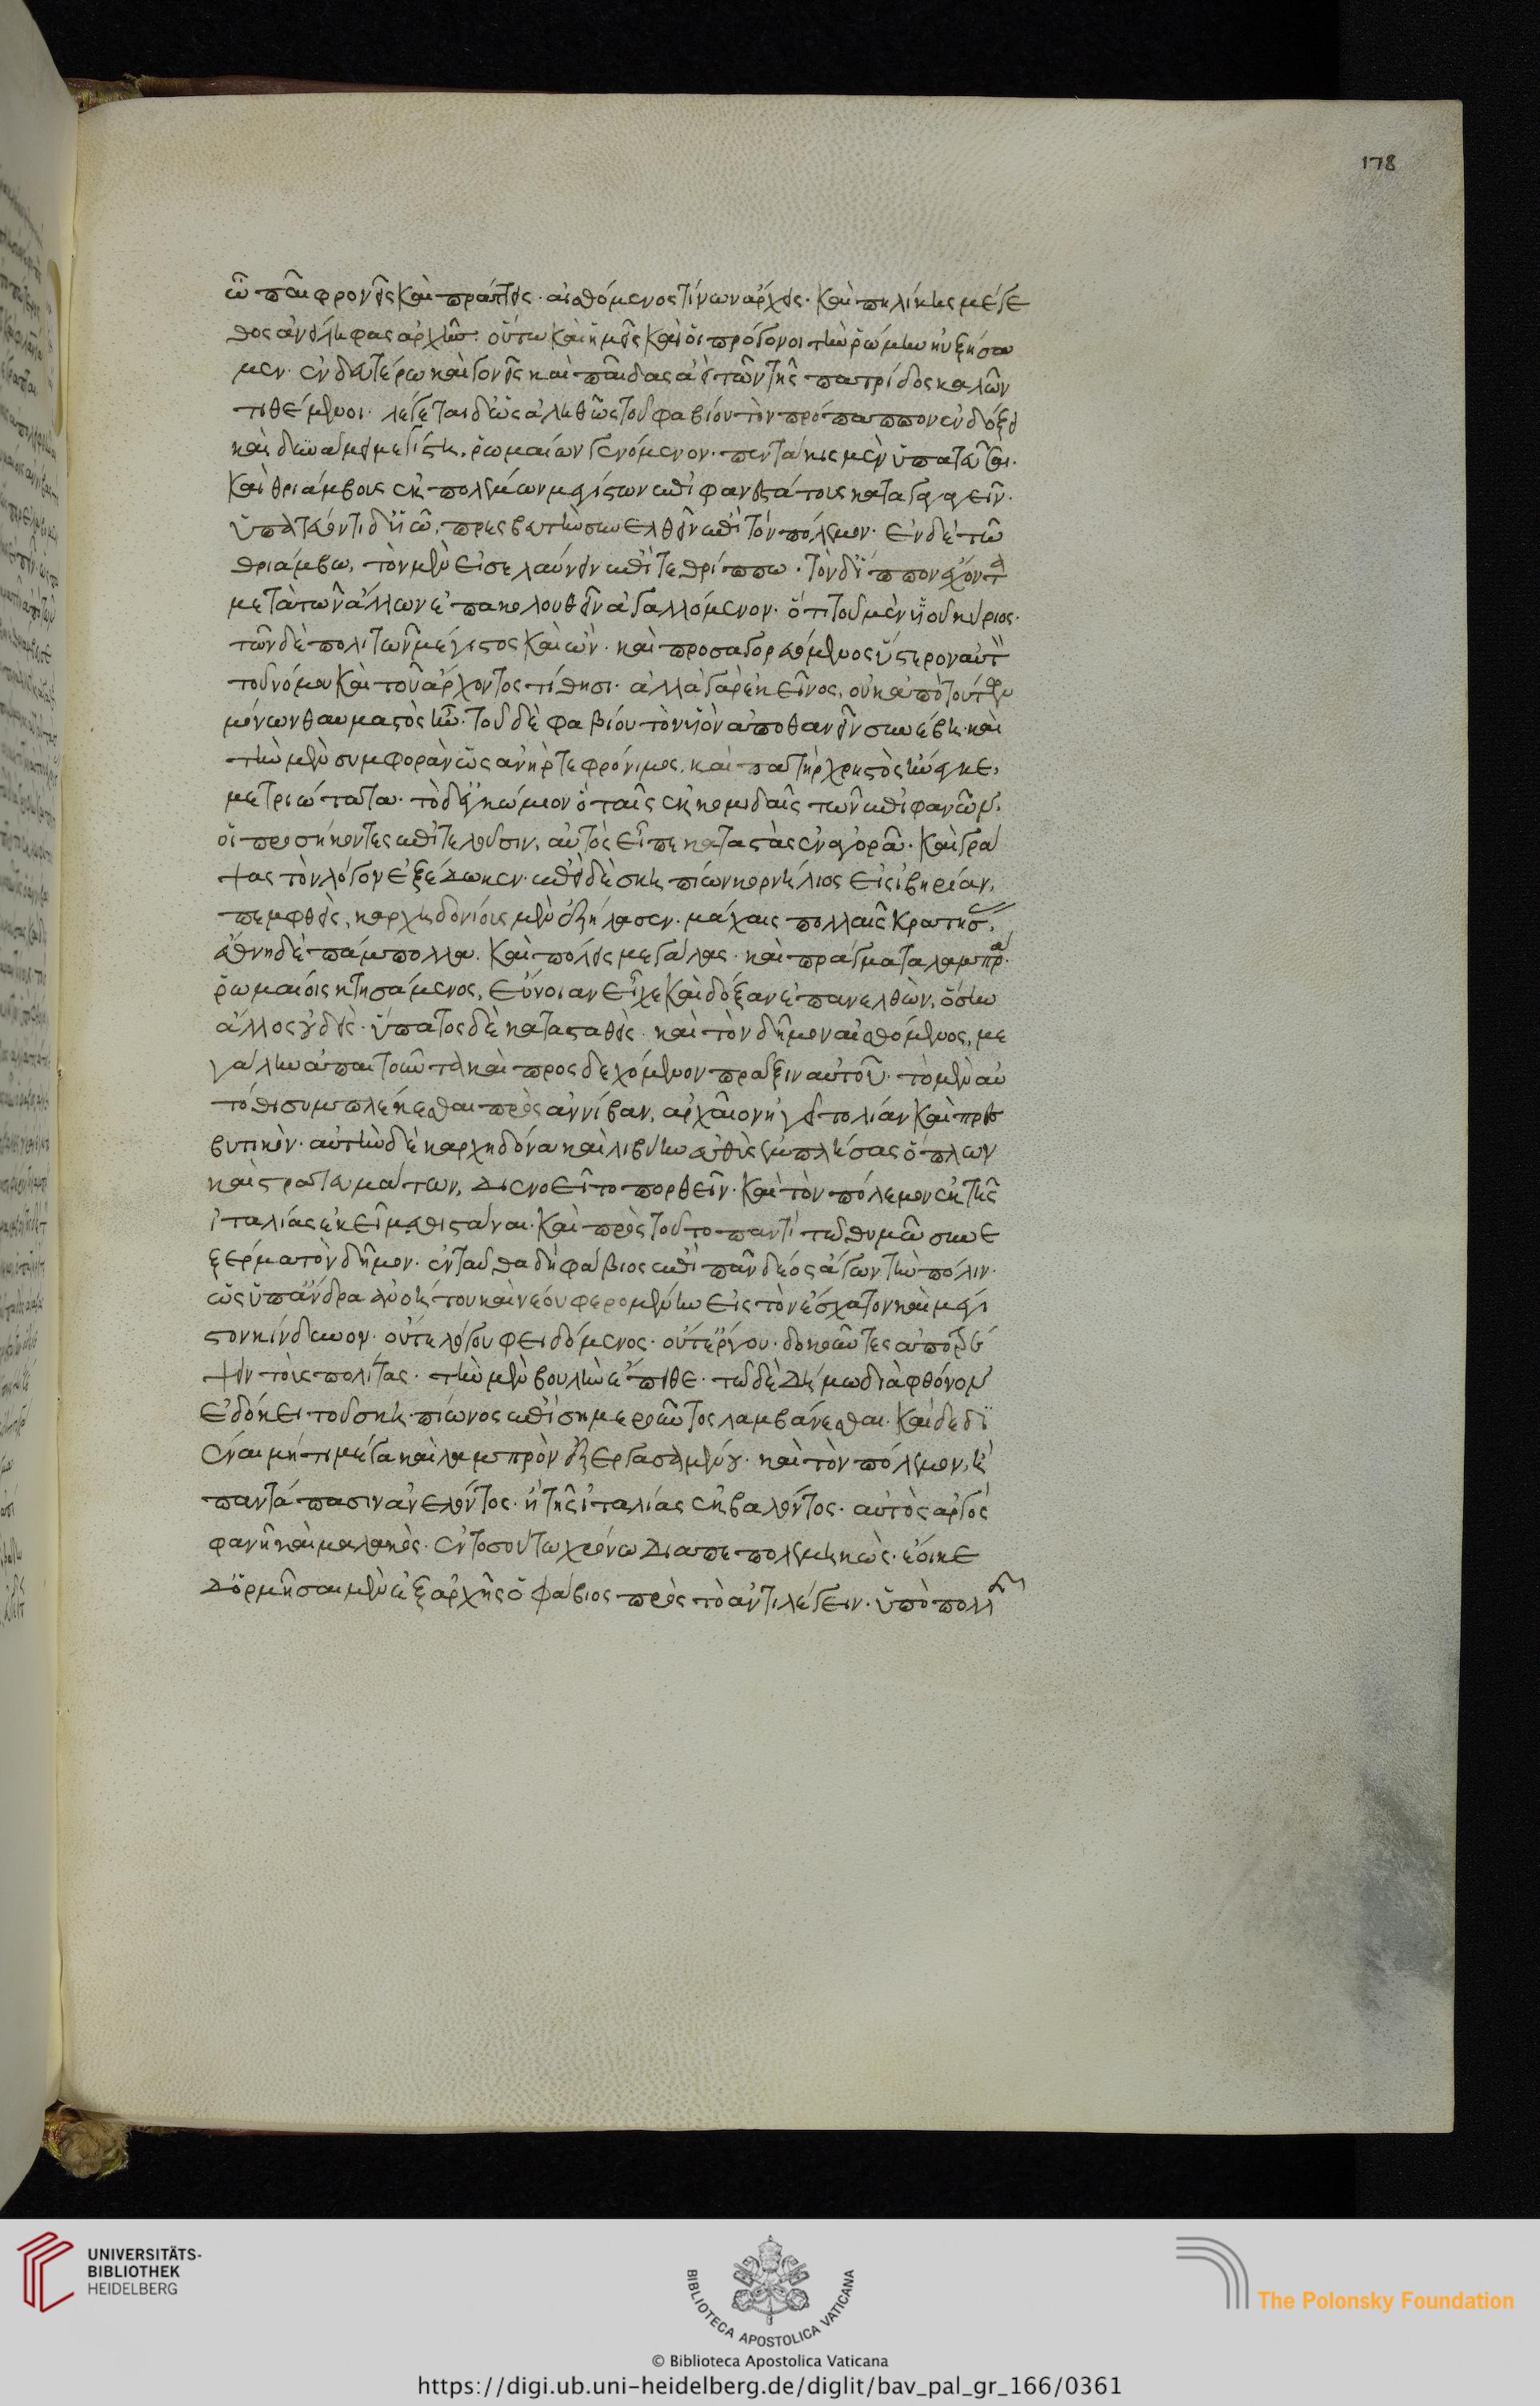 ὦ παῖ φρονεῖς καὶ πράττεις· αἰσθόμενος τίνων ἄρχεις· καὶ πηλίκης μέγε
θος ἀνείληφας ἀρχῆς· οὕτω καὶ ἡμεῖς καὶ οἱ πρόγονοι τὴν ῥώμην ηὐξήσα
μεν· ἐν δευτέρω καὶ γονεῖς καὶ παῖδας ἀεὶ τῶν τῆς πατρίδος καλῶν
τιθέμενοι· λέγεται δ' ὡς ἀληθῶς τοῦ φαβίου τὸν πρόπαππον ἐν δόξει
καὶ δυνάμει μεγίστη, ῥωμαίων γενόμενον· πεντάκις μὲν ὑπατεῦσαι·
καὶ θριάμβους ἐκ πολέμων μεγίστων ἐπιφανεστάτους καταγαγεῖν·
ὑπατεύοντι δ' υἱῶ, πρεσβευτὴν συνελθεῖν ἐπὶ τὸν πόλεμον· ἐν δὲ τῶ
θριάμβω, τὸν μὲν εἰσελαύνειν ἐπὶ τεθρίππω· τὸν δ' ἵππον ἔχοντα
μετὰ τῶν ἄλλων ἐπακολουθεῖν ἀγαλλόμενον· ὅτι τοῦ μὲν υἱοῦ κύριος·
τῶν δὲ πολιτῶν μέγιστος καὶ ὢν· καὶ προσαγορευόμενος ὕστερον αὐτὸν
τοῦ νόμου καὶ τοῦ ἄρχοντος τίθησι· ἀλλὰ γὰρ ἐκεῖνος, οὐκ ἀπὸ τούτων
μόνων θαυμαστὸς ἦν· τοῦ δὲ φαβίου τὸν υἱὸν ἀποθανεῖν συνέβη· καὶ
τὴν μὲν συμφορὰν ὡς ἀνήρ τε φρόνιμος, καὶ πατὴρ χρηστὸς ἤνεγκε,
μετριώτατα· τὸ δ' ἐγκώμιον ὃ ταῖς ἐκκομιδαῖς τῶν ἐπιφανῶν·
οἱ προσήκοντες ἐπιτελοῦσιν, αὐτὸς εἶπε καταστὰς ἐν ἀγορᾶ· καὶ γρά
ψας τὸν λόγον ἐξέδωκεν· ἐπεὶ δὲ σκηπίων κορνήλιος εἰς ἰβηρίαν,
πεμφθεὶς, καρχηδονίους μὲν ἐξήλασεν· μάχαις πολλαῖς κρατήσας,
ἔθνη δὲ πάμπολλα· καὶ πόλεις μεγάλας· καὶ πράγματα λαμπρὰ·
ῥωμαίοις κτησάμενος, εὔνοιαν εἶχε καὶ δόξαν ἐπανελθὼν, ὅσην
ἄλλος οὐδεὶς· ὕπατος δὲ κατασταθεὶς· καὶ τὸν δῆμον αἰσθόμενος, με
γάλην ἀπαιτοῦντα καὶ προσδεχόμενον πρᾶξιν αὐτοῦ· τὸ μὲν αὐ
τόθι συμπλέκεσθαι πρὸς ἀννίβαν, ἀρχαῖον ἡγεῖτο λίαν καὶ πρεσ
βυτικὸν· αὐτὴν δὲ καρχηδόνα καὶ λιβύην εὐθὺς ἐμπλήσας ὅπλων
καὶ στρατευμάτων, διενοεῖτο πορθεῖν· καὶ τὸν πόλεμον ἐκ τῆς
ἰταλίας ἐκεῖ μεθιστάναι· καὶ πρὸς τοῦτο παντὶ τῶ θυμῶ συνε
ξώρμα τὸν δῆμον· ἐνταῦθα δὴ φάβιος ἐπὶ πᾶν δέος ἄγων τὴν πόλιν·
ὡς ὑπ' ἄνδρα ἀνοήτου καὶ νέου φερομένην εἰς τὸν ἔσχατον καὶ μέγι
στον κίνδυνον· οὔτε λόγου φειδόμενος· οὔτ' ἔργου· δοκοῦντος ἀποτρέ
ψειν τοὺς πολίτας· τὴν μὲν βουλὴν ἔπειθε· τῶ δὲ δήμω διὰ φθόνον
ἐδόκει τοῦ σκηπίωνος ἐπὶ σημεροῦντος λαμβάνεσθαι· καὶ δεδι
έναι μή τι μέγα καὶ λαμπρὸν ἐξεργασαμένου· καὶ τὸν πόλεμον, ἢ
παντάπασιν ἀνελόντος· ἢ τῆς ἰταλίας ἐκβαλόντος· αὐτὸς ἀργὸς
φανῆ καὶ μαλακὸς· ἐν τοσούτω χρόνω διαπεπολεμηκὼς· ἔοικε
δ' ὁρμῆσαι μὲν ἐξ ἀρχῆς ὁ φάβιος πρὸς τὸ ἀντιλέγειν· ὑπὸ πολλῆς
178
UNIVERSITÄTS-
BIBLIOTHEK
HEIDELBERG
BIBLIOTECA APOSTOLICA VATICANA
© Biblioteca Apostolica Vaticana
The Polonsky Foundation
https://digi.ub.uni-heidelberg.de/diglit/bav_pal_gr_166/0361